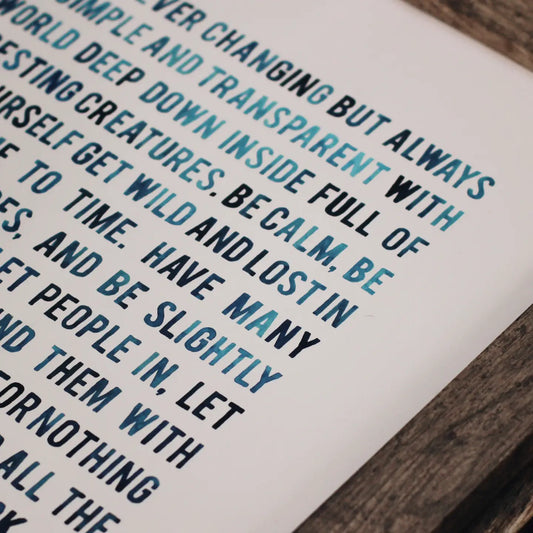 EVER CHANGING BUT ALWAYS
SIMPLE AND TRANSPARENT WITH
WORLD DEEP DOWN INSIDE FULL OF
ESTING CREATURES. BE CALM, BE
URSELF GET WILD AND LOST IN
TO TIME. HAVE MANY
ES, AND BE SLIGHTLY
LET PEOPLE IN, LET
ND THEM WITH
FOR NOTHING
ALL THE